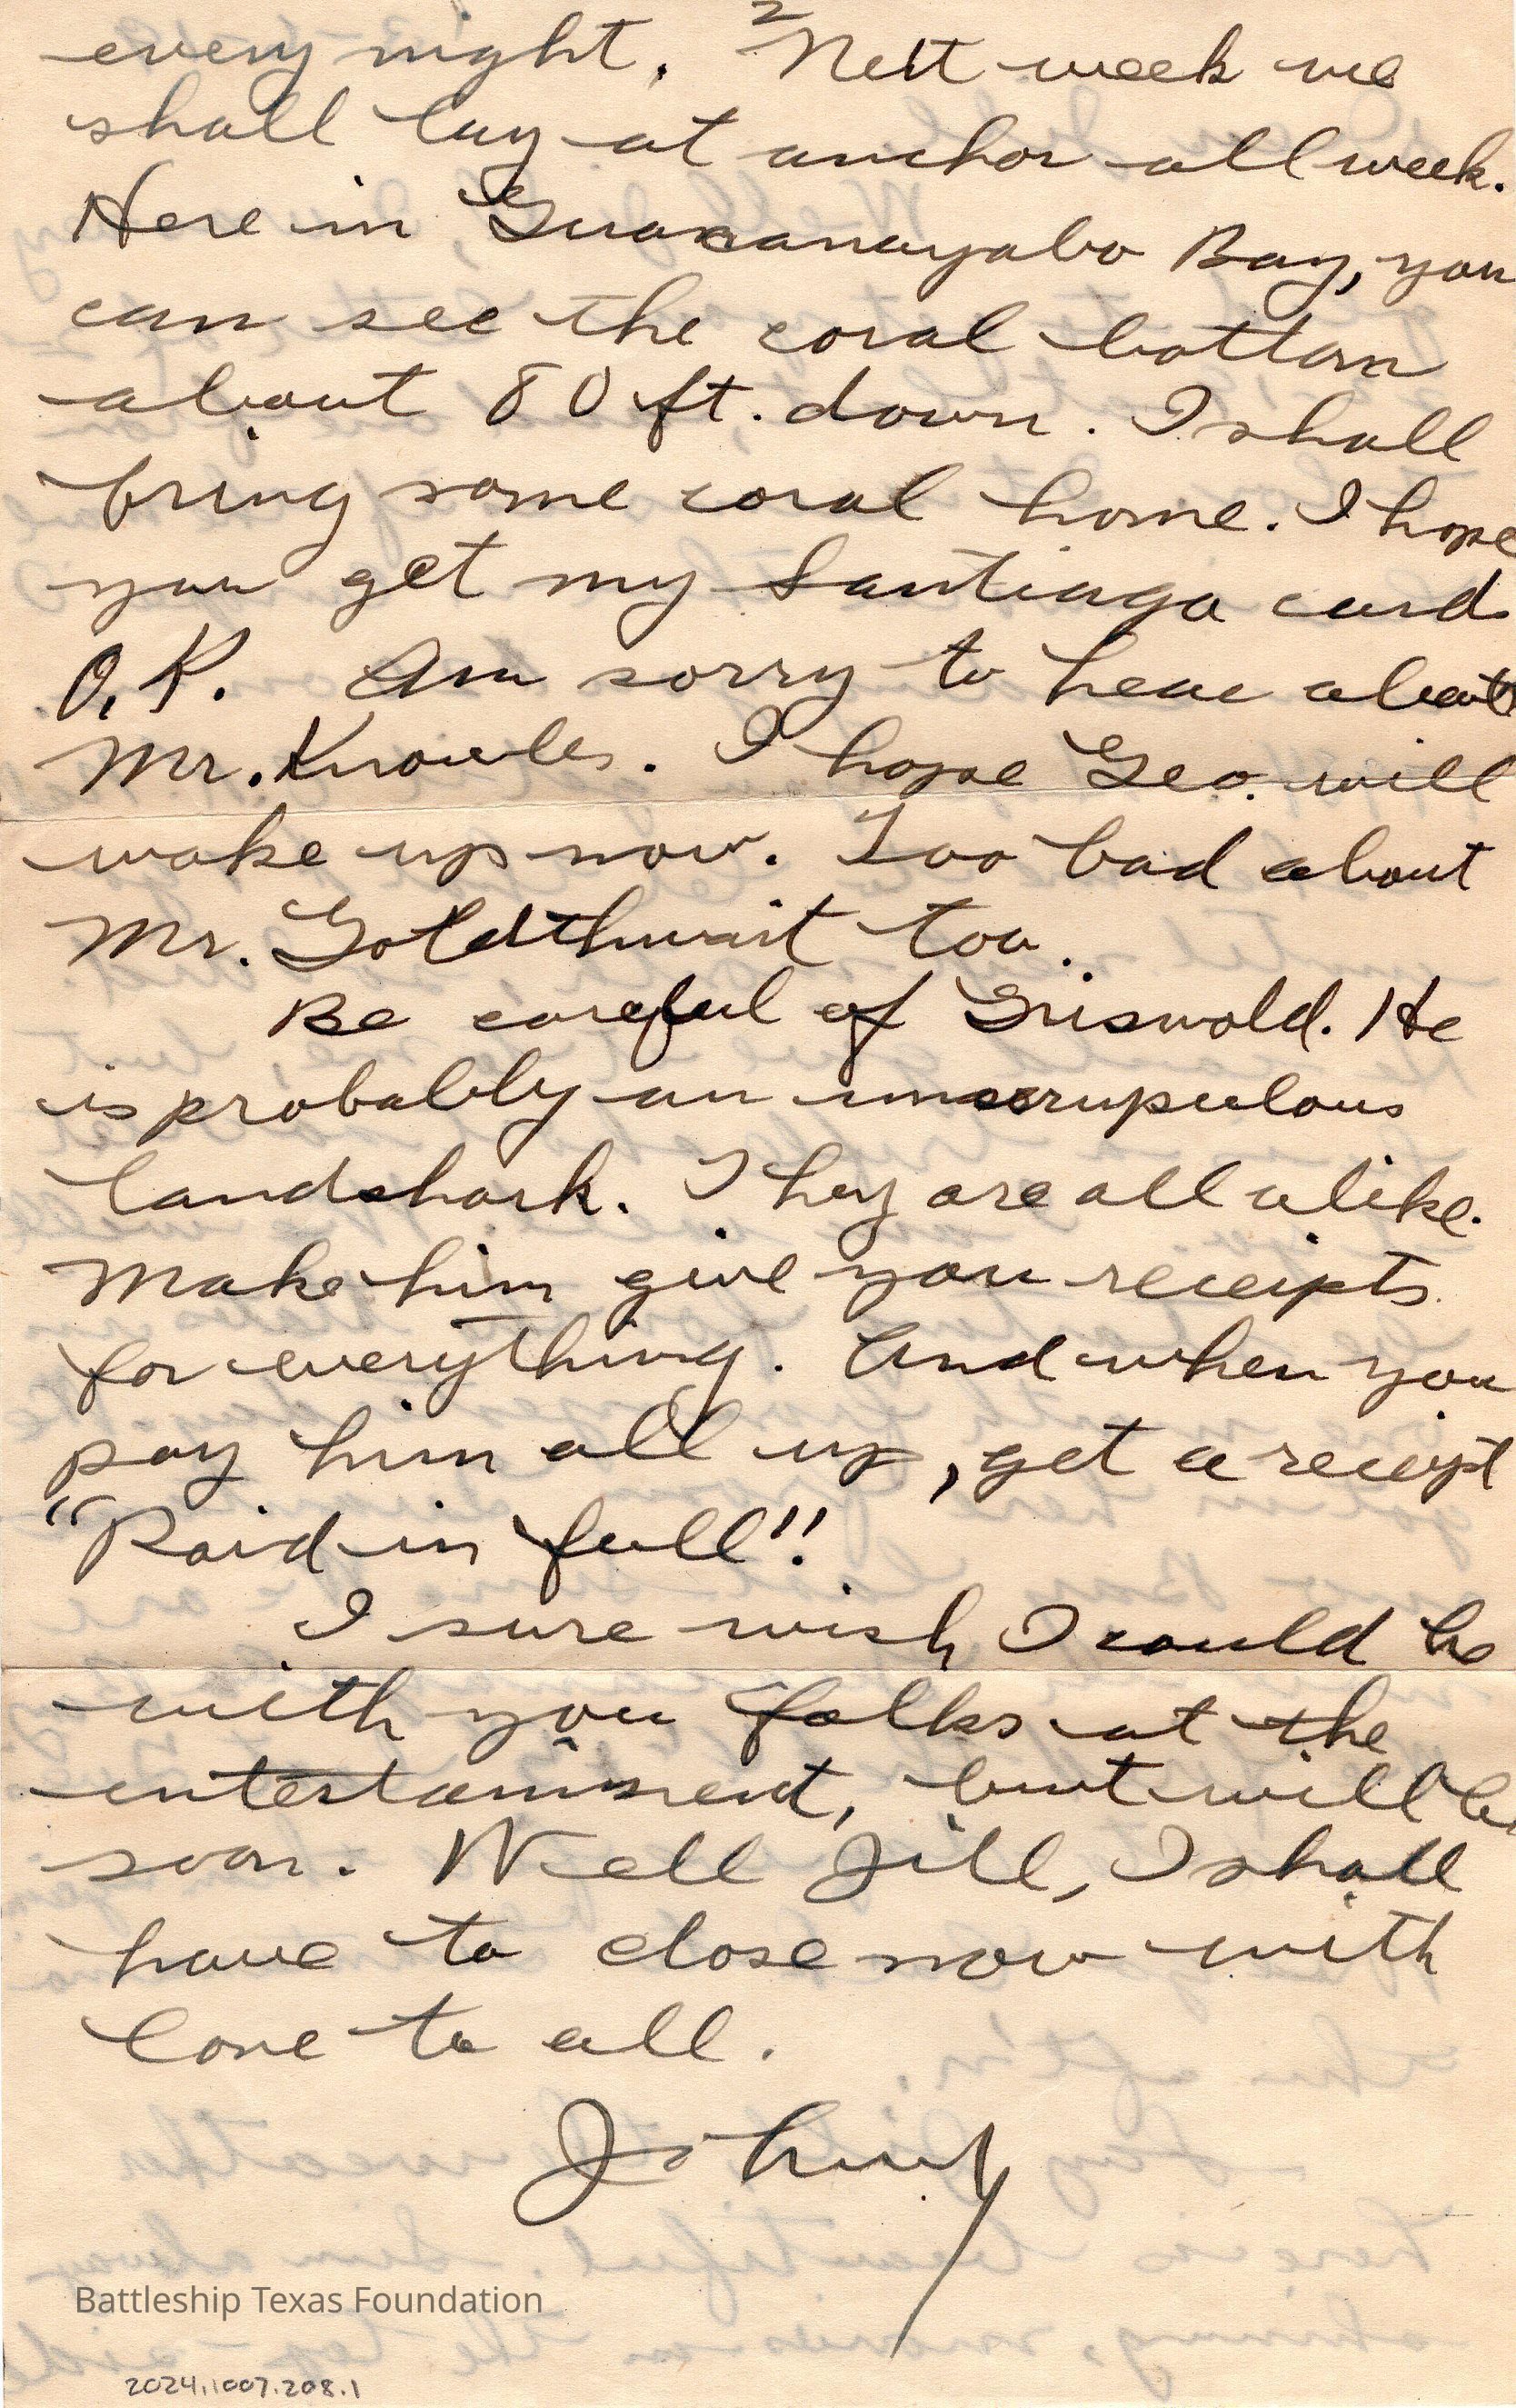 2
every night. Next week we
shall lay at anchor all week.
Here in Guacanayabo Bay, you
can see the coral bottom
about 80 ft. down. I shall
bring some coral home. I hope
you get my Santiago card
O.K. Am sorry to hear about
Mr. Knowles. I hope Geo. will
wake up now. Too bad about
Mr. Goldthwait too.
Be careful of Griswold. He
is probably an unscrupulous
landshark. They are all alike.
Make him give you receipts
for everything. And when you
pay him all up, get a receipt
"Paid in full"!
I sure wish I could be
with you folks at the
entertainment, but will be
soon. Well Jill, I shall
have to close now with
love to all.
Johny
Battleship Texas Foundation
2024.1007.208.1